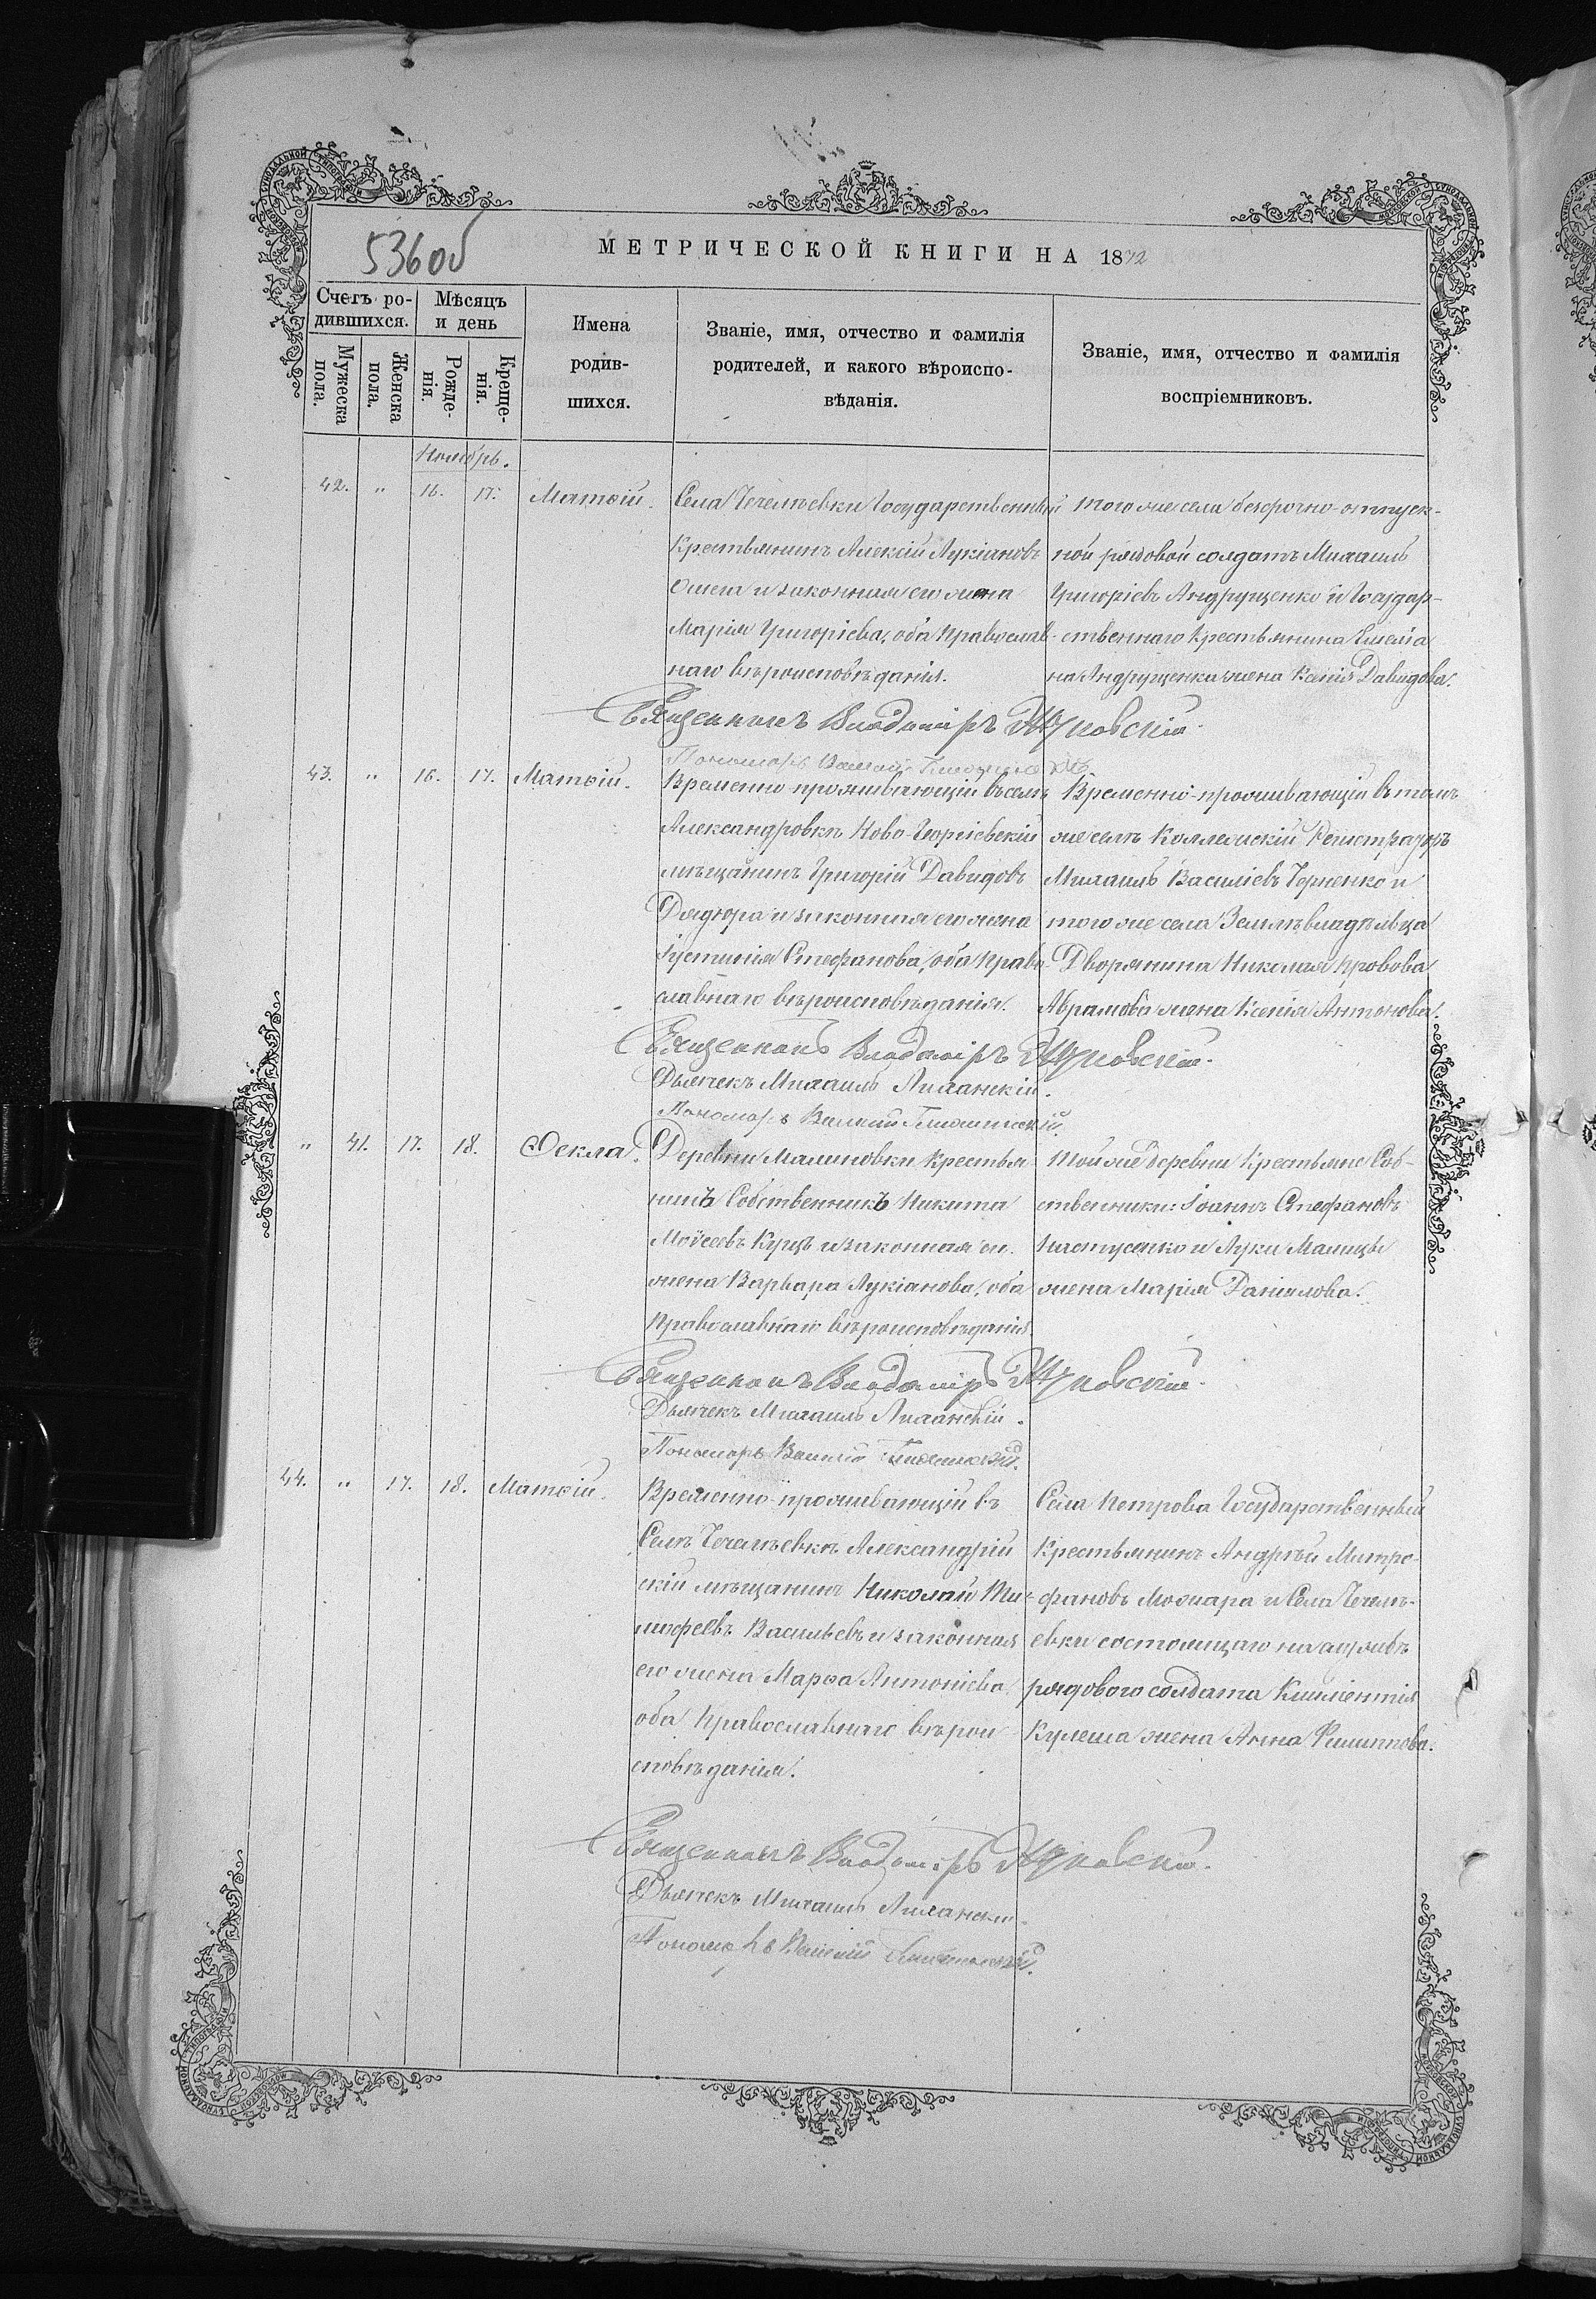 536об
МЕТРИЧЕСКОЙ КНИГИ НА 1872
Счетъ ро-
дившихся.
Мужеска пола.
Женска пола.
Мѣсяцъ
и день
Рожде-
нія.
Креще-
нія.
Имена
родив-
шихся.
Званіе, имя, отчество и фамилія
родителей, и какого вѣроиспо-
вѣданія.
Званіе, имя, отчество и фамилія
воспріемниковъ.
Ноябрь.
42. " 16. 17. Матѳій.
Села Чечелѣевки Государственный
Крестьянинъ Алексій Лукіановъ
и законная его жена
Марія Григоріева, оба Православ-
наго вѣроисповѣданія.
Того же села безсрочно-отпуск-
ной рядовой солдатъ Михаилъ
Григоріевъ Андрущенко и Государ-
ственнаго Крестьянина Емелiа
на Андрущенка жена Ксенія Давидова.
Священникъ Владиміръ
Пономарь Василій
43. " 16. 17. Матѳій.
Временно-проживающій въ селѣ
Александровкѣ Ново-Георгіевскій
мѣщанинъ Григорій Давидовъ
Дядюра и законная его жена
Іустинія Стефанова, оба Право-
славнаго вѣроисповѣданія.
Временно-проживающій въ томъ
же селѣ Коллежскій Регистраторъ
Михаилъ Василіевъ Черненко и
того же села Землѣвладѣльца
Дворянина Николая
Абрамова жена Ксенія Антонова.
Священникъ Владиміръ
Дьячекъ Михаилъ Лиханскій.
Пономарь Василій
" 41. 17. 18. Ѳекла.
Деревни Малиновки Крестья
нинъ Собственникъ Никита
Моѵсеевъ Куцъ и законная его
жена Варвара Лукіанова, оба
Православнаго вѣроисповѣданія
Той же деревни Крестьяне Соб-
ственники: Іоаннъ Стефановъ
и Луки Малицы
жена Марія Даніилова.
Священникъ Владиміръ
Дьячекъ Михаилъ Лиханскій.
Пономарь Василій
44. " 17. 18. Матѳій.
Временно-проживающій въ
Селѣ Чечелѣевкѣ Александрій
скій мѣщанинъ Николай Ти-
мофеевъ Васильевъ и законная
его жена Марѳа Антоніева
оба Православнаго вѣрои
сповѣданія.
Села Петрова Государственный
Крестьянинъ Андрѣй Митро-
фановъ Можара и Села Чечелѣ-
евки состоящаго на службѣ
рядового солдата Климентія
Кулеша жена Анна Филиппова.
Священникъ Владиміръ
Дьячекъ Михаилъ Лиханскій.
Пономарь Василій